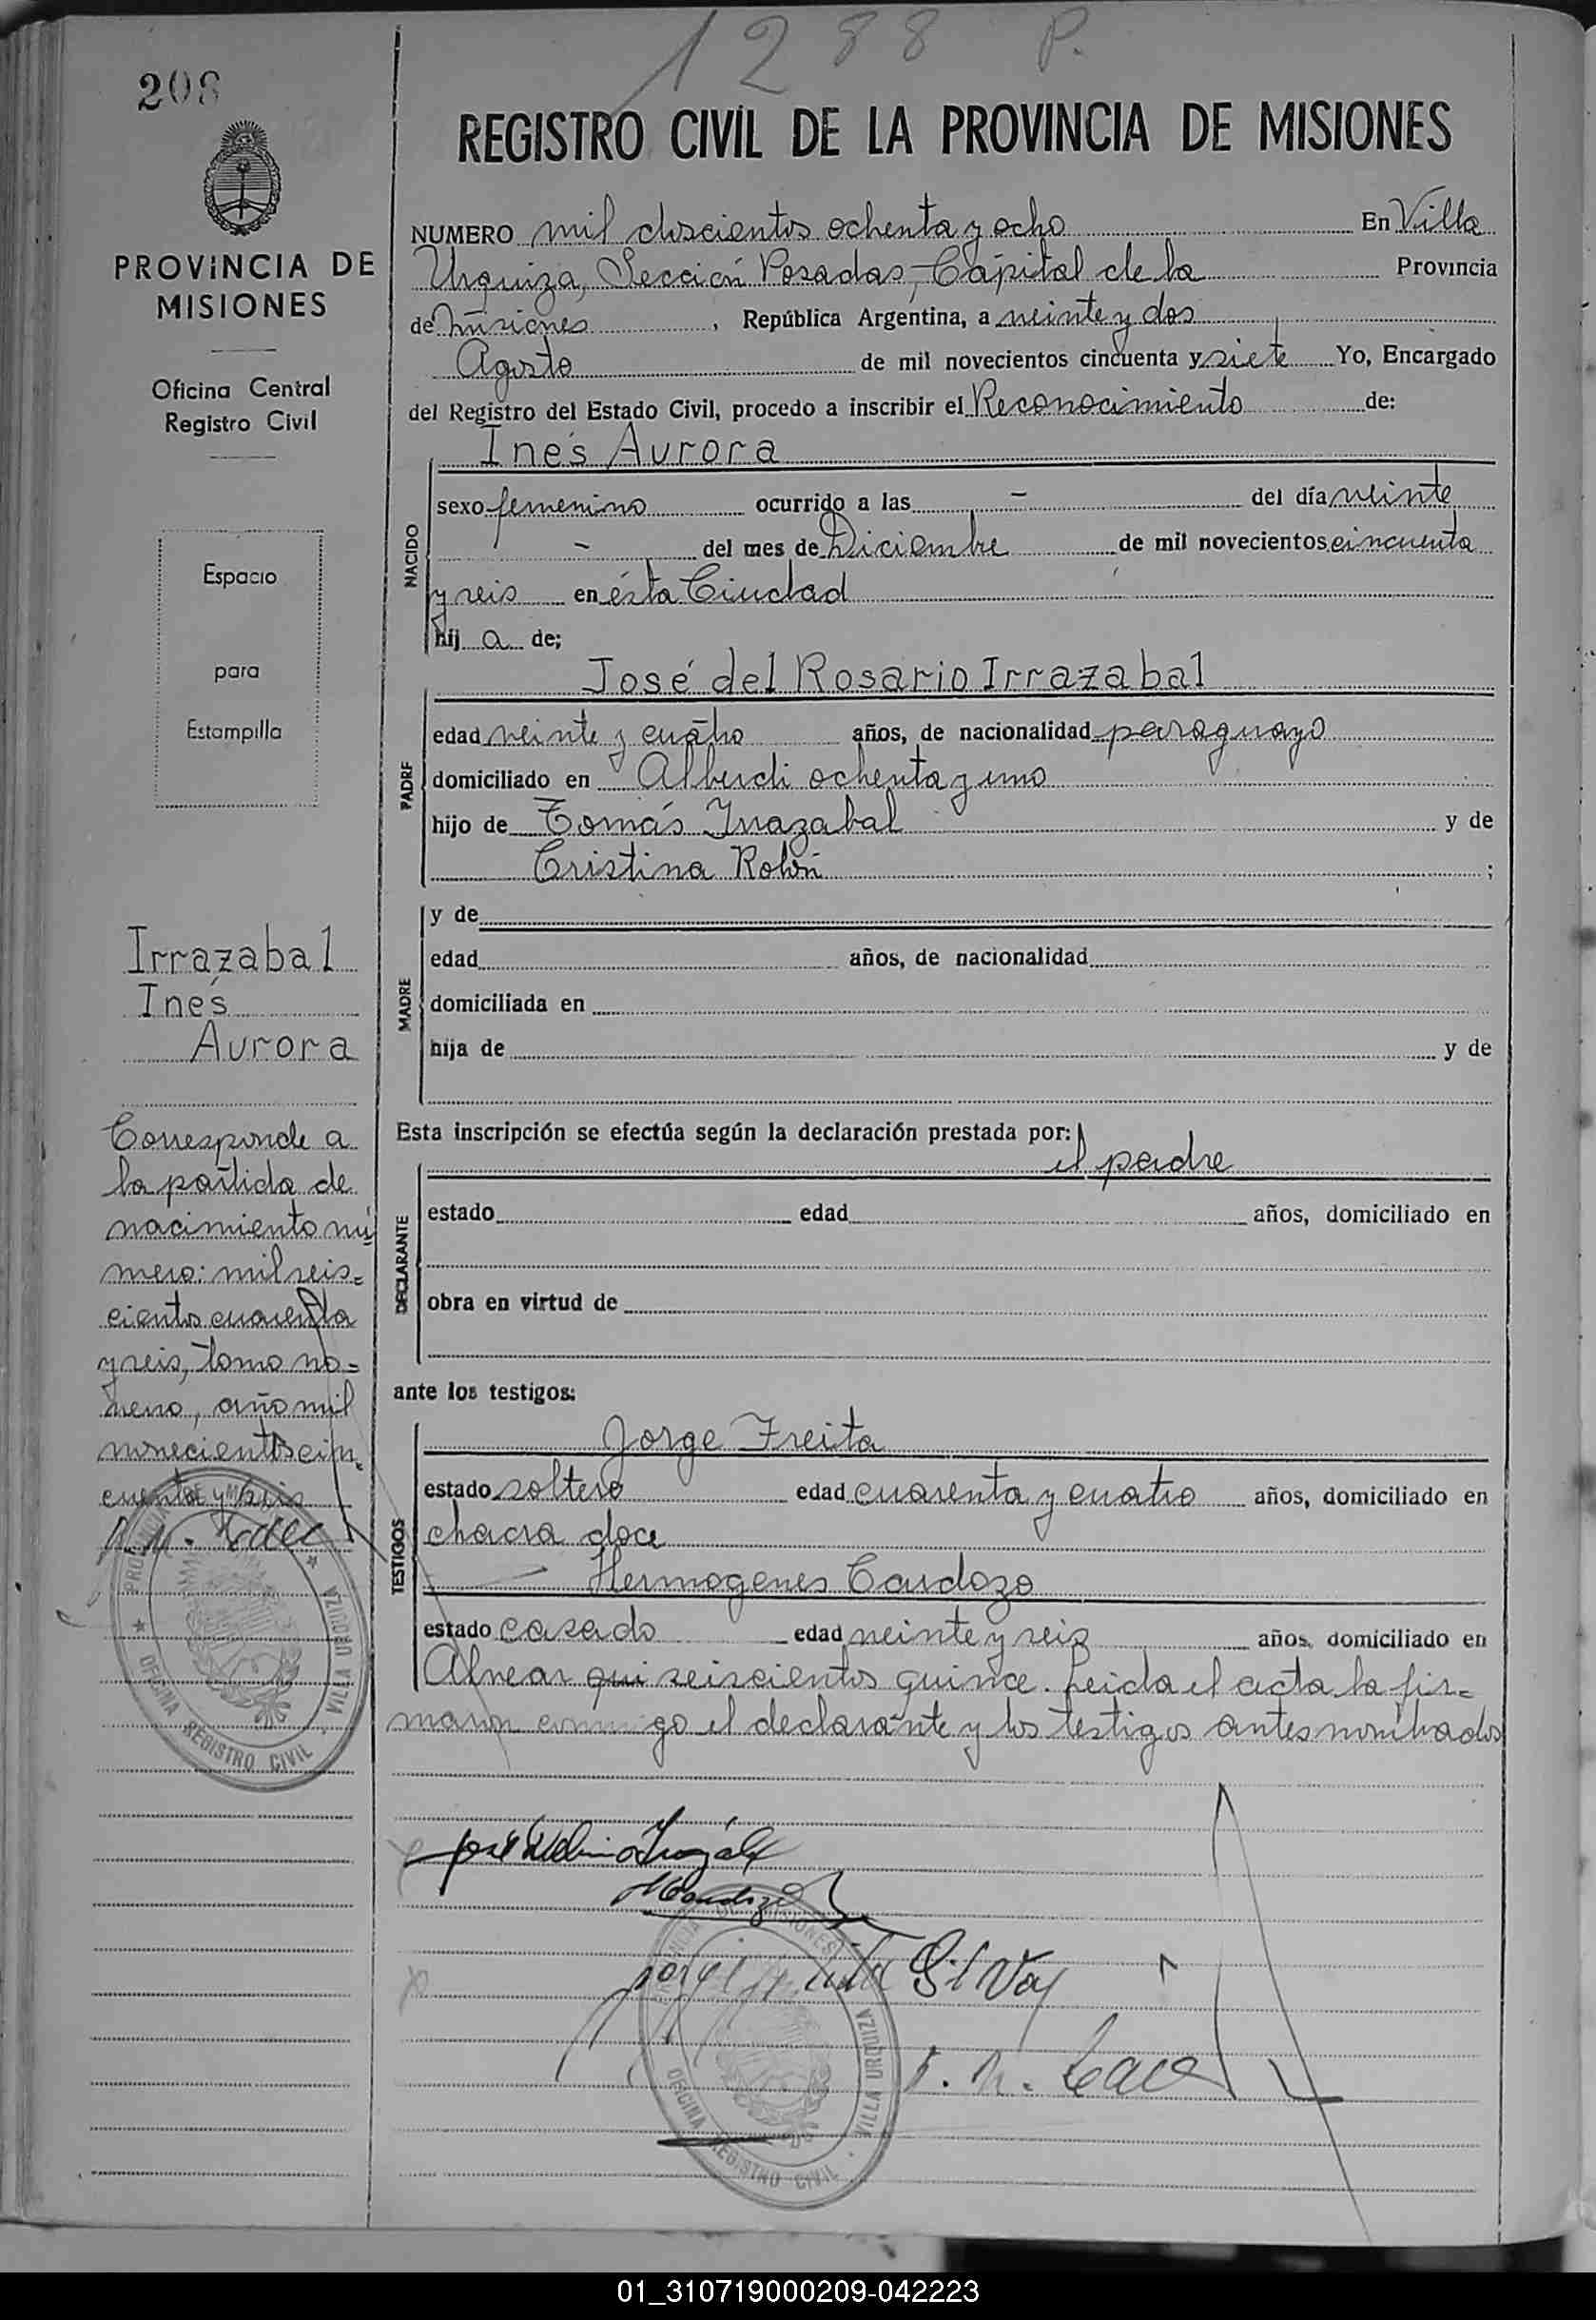 1288 P.
208
REGISTRO CIVIL DE LA PROVINCIA DE MISIONES
PROVINCIA DE
MISIONES
Oficina Central
Registro Civil
Espacio
para
Estampilla
Irrazabal
Inés
Aurora
Corresponde a
la partida de
nacimiento nú
mero: mil seis=
cientos cuarenta
y seis, tomo no=
veno, año mil
novecientos cin-
cuenta y seis
PROVINCIA DE MISIONES
OFICINA REGISTRO CIVIL · VILLA URQUIZA
NUMERO mil doscientos ochenta y ocho En Villa
Urquiza, Sección Posadas, Capital de la Provincia
de Misiones, República Argentina, a veinte y dos
Agosto de mil novecientos cincuenta y siete Yo, Encargado
del Registro del Estado Civil, procedo a inscribir el Reconocimiento de:
NACIDO
Inés Aurora
sexo femenino ocurrido a las - del día veinte
- del mes de Diciembre de mil novecientos cincuenta
y seis en ésta Ciudad
hij a de;
PADRE
José del Rosario Irrazabal
edad veinte y cuatro años, de nacionalidad paraguayo
domiciliado en Alberdi ochenta y uno
hijo de Tomás Irrazabal y de
Cristina Rolón ;
MADRE
y de
edad años, de nacionalidad
domiciliada en
hija de y de
Esta inscripción se efectúa según la declaración prestada por:
el padre
DECLARANTE
estado edad años, domiciliado en
obra en virtud de
ante los testigos:
TESTIGOS
Jorge Freita
estado soltero edad cuarenta y cuatro años, domiciliado en
chacra doce
Hermogenes Cardozo
estado casado edad veinte y seis años, domiciliado en
Alvear qui seiscientos quince. Leida el acta la fir=
maron conmigo el declarante y los testigos antes nombrados
OFICINA REGISTRO CIVIL · VILLA URQUIZA
01_310719000209-042223